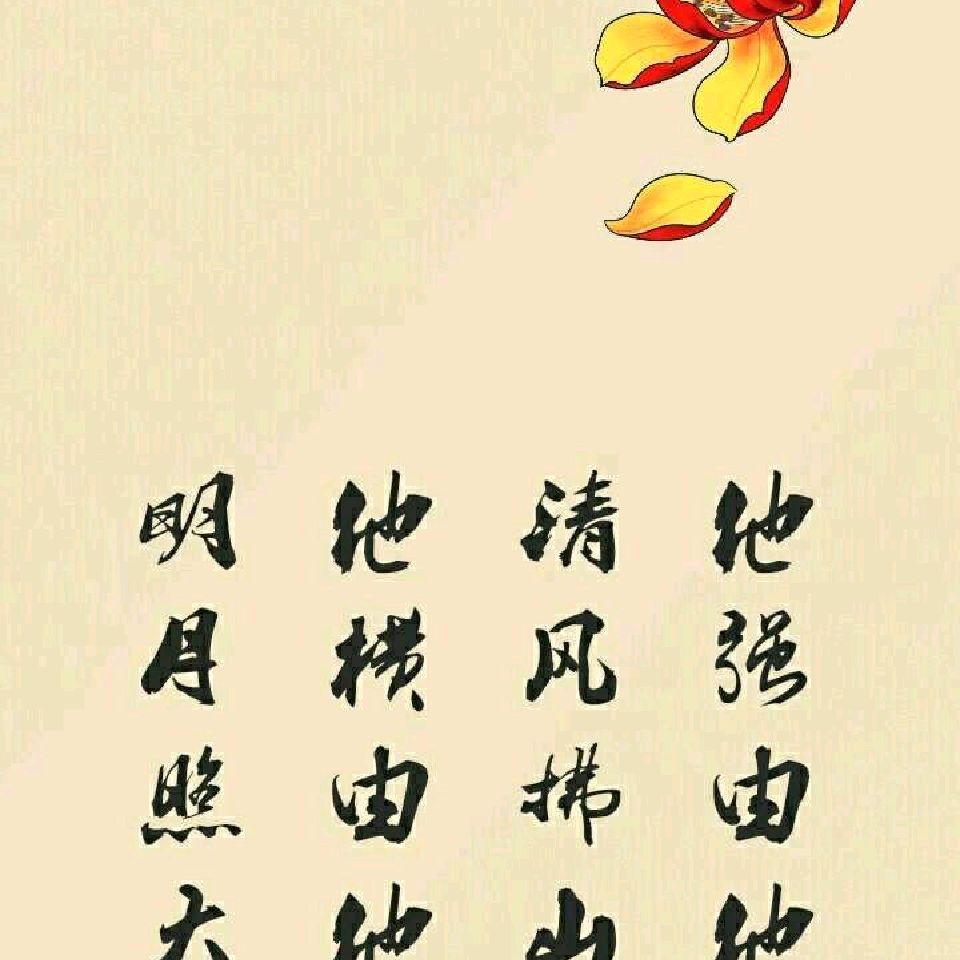 他强由他
清风拂山
他横由他
明月照大